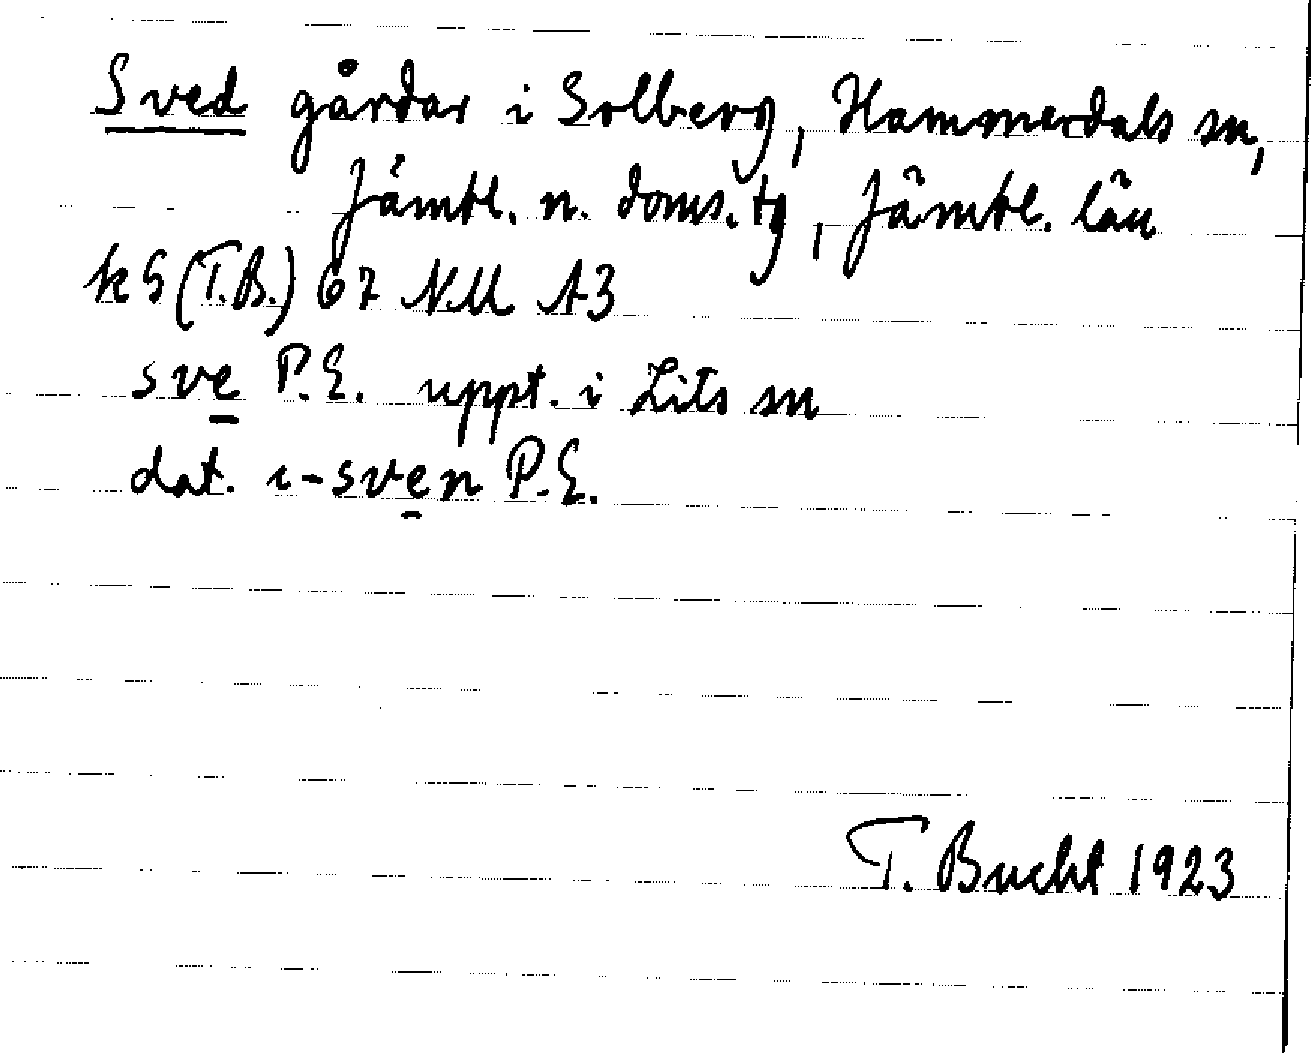 Sved gårdar i Solberg, Hammerdals sn,
Jämtl. n. doms.tg, Jämtl. län
k5 (T.B.) 67 NM A3
sve P.E. uppt. i Lits sn
dat. i-sven P.E.
T. Bucht 1923